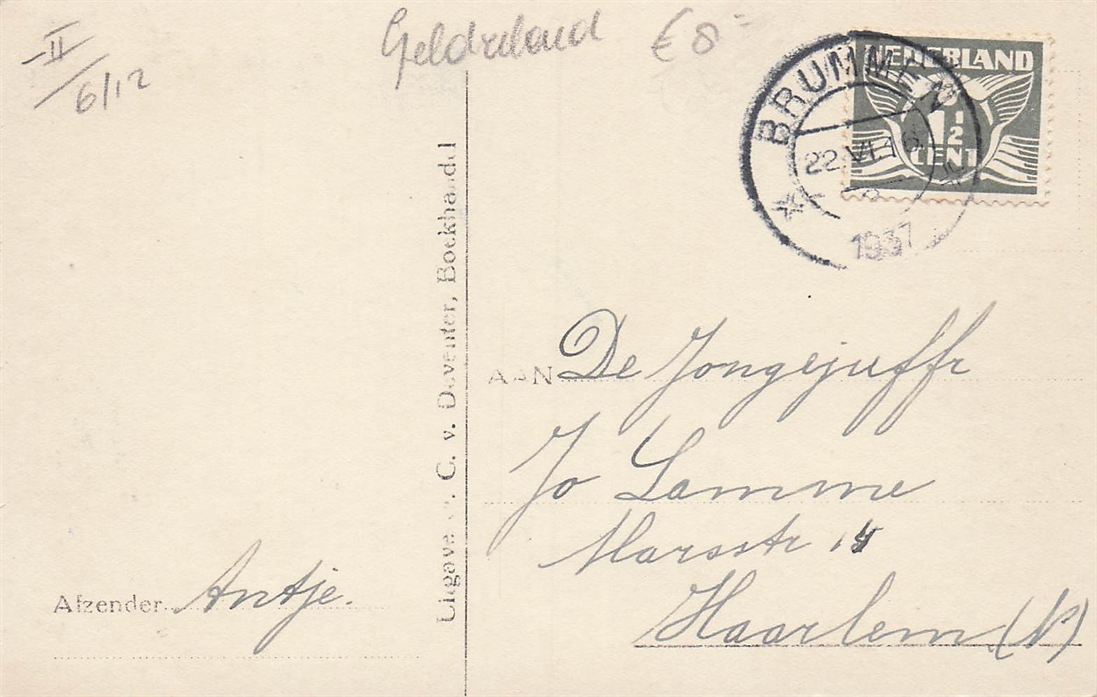 II
6/12
Geldreland €8-
NEDERLAND
1 1/2
CENT
BRUMMEN
22.VI.
1937
Uitgave C. v. Deventer, Boekhandel
AAN De Jongejuffr
Jo Lamme
Marsstr 14
Haarlem (N)
Afzender Antje.